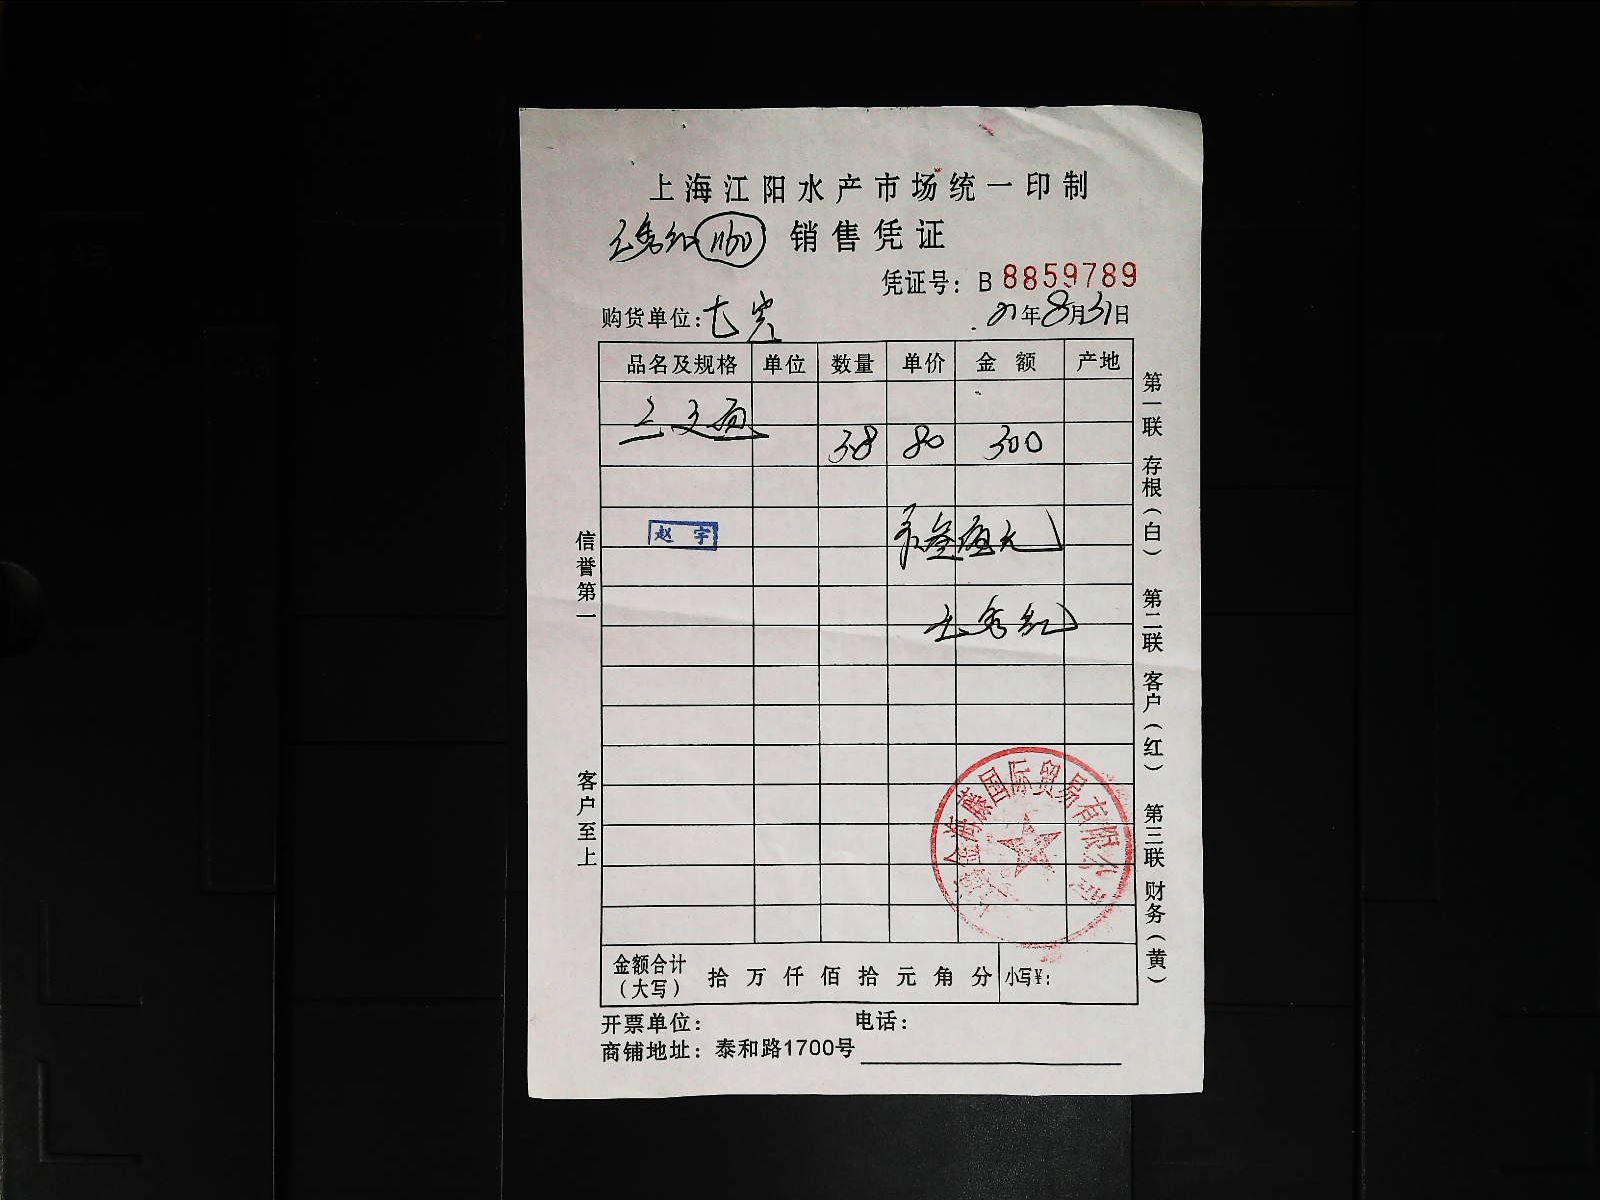 上海江阳水产市场统一印制
王秀红 1160 销售凭证
凭证号：B 8859789
购货单位：七宾 21年8月31日
品名及规格 单位 数量 单价 金额 产地
三文鱼
3.8 80 300
赵宇
王秀红
金海藤国际贸易有限公
金额合计（大写） 拾 万 仟 佰 拾 元 角 分 小写￥：
开票单位： 电话：
商铺地址：泰和路1700号
信誉第一 客户至上
第一联 存根（白） 第二联 客户（红） 第三联 财务（黄）